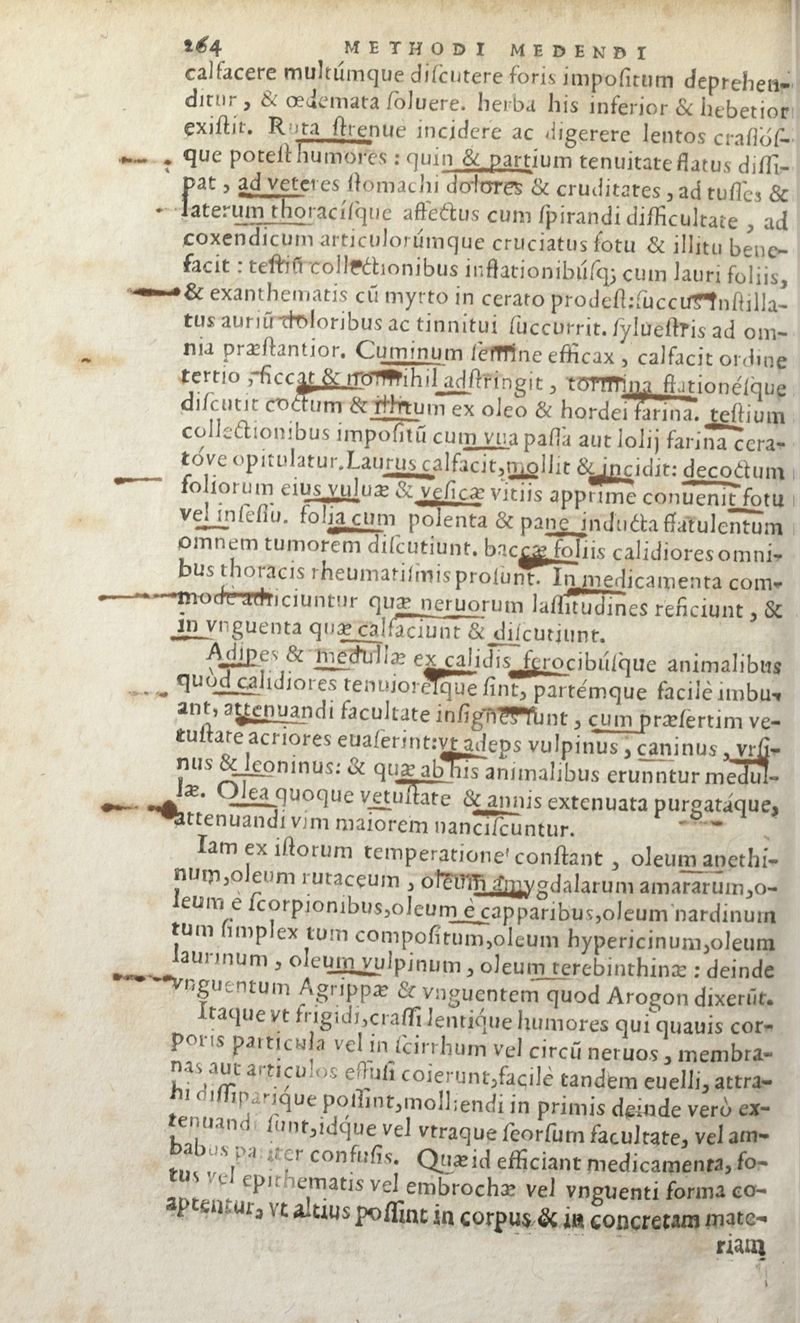 264 METHODI MEDENDI
calfacere multúmque discutere foris impositum deprehen-
ditur, & œdemata soluere. herba his inferior & hebetior
existit. Ruta strenue incidere ac digerere lentos crassós-
que potest humores : quin & partium tenuitate flatus dissi-
pat, ad veteres stomachi dolores & cruditates, ad tusses &
laterum thoracísque affectus cum spirandi difficultate, ad
coxendicum articulorúmque cruciatus fotu & illitu bene-
facit : testiũ collectionibus inflationibúsq; cum lauri foliis,
& exanthematis cũ myrto in cerato prodest: succus instilla-
tus auriũ doloribus ac tinnitui succurrit. syluestris ad om-
nia præstantior. Cuminum semine efficax, calfacit ordine
tertio, siccat & nihil adstringit, tormina flationésque
discutit coctum & illitum ex oleo & hordei farina. testium
collectionibus impositũ cum vua passa aut lolij farina cera-
tóve opitulatur. Laurus calfacit, mollit & incidit: decoctum
foliorum eius vuluæ & vesicæ vitiis apprime conuenit fotu
vel insessu. folia cum polenta & pane inducta flatulentum
omnem tumorem discutiunt. baccæ foliis calidiores omni-
bus thoracis rheumatismis prosunt. In medicamenta com-
mode adiiciuntur quæ neruorum lassitudines reficiunt, &
in vnguenta quæ calfaciunt & discutiunt.
Adipes & medullæ ex calidis ferocibúsque animalibus
quòd calidiores tenuiorésque sint, partémque facilè imbu-
ant, attenuandi facultate insignes sunt, cum præsertim ve-
tustate acriores euaserint: vt adeps vulpinus, caninus, vrsi-
nus & leoninus: & quæ ab his animalibus erunntur medul-
læ. Olea quoque vetustate & annis extenuata purgatáque,
attenuandi vim maiorem nanciscuntur.
Iam ex istorum temperatione constant, oleum anethi-
num, oleum rutaceum, oleum amygdalarum amararum, o-
leum è scorpionibus, oleum è capparibus, oleum nardinum
tum simplex tum compositum, oleum hypericinum, oleum
laurinum, oleum vulpinum, oleum terebinthinæ : deinde
vnguentum Agrippæ & vnguentem quod Arogon dixerũt.
Itaque vt frigidi, crassi lentíque humores qui quauis cor-
poris particula vel in scirrhum vel circũ neruos, membra-
nas aut articulos effusi coierunt, facilè tandem euelli, attra-
hi dissiparique possint, molliendi in primis deinde verò ex-
tenuandi sunt, idque vel vtraque seorsum facultate, vel am-
babus pariter confusis. Quæ id efficiant medicamenta, fo-
tus vel epithematis vel embrochæ vel vnguenti forma co-
aptentur, vt altius possint in corpus & in concretam mate-
riam